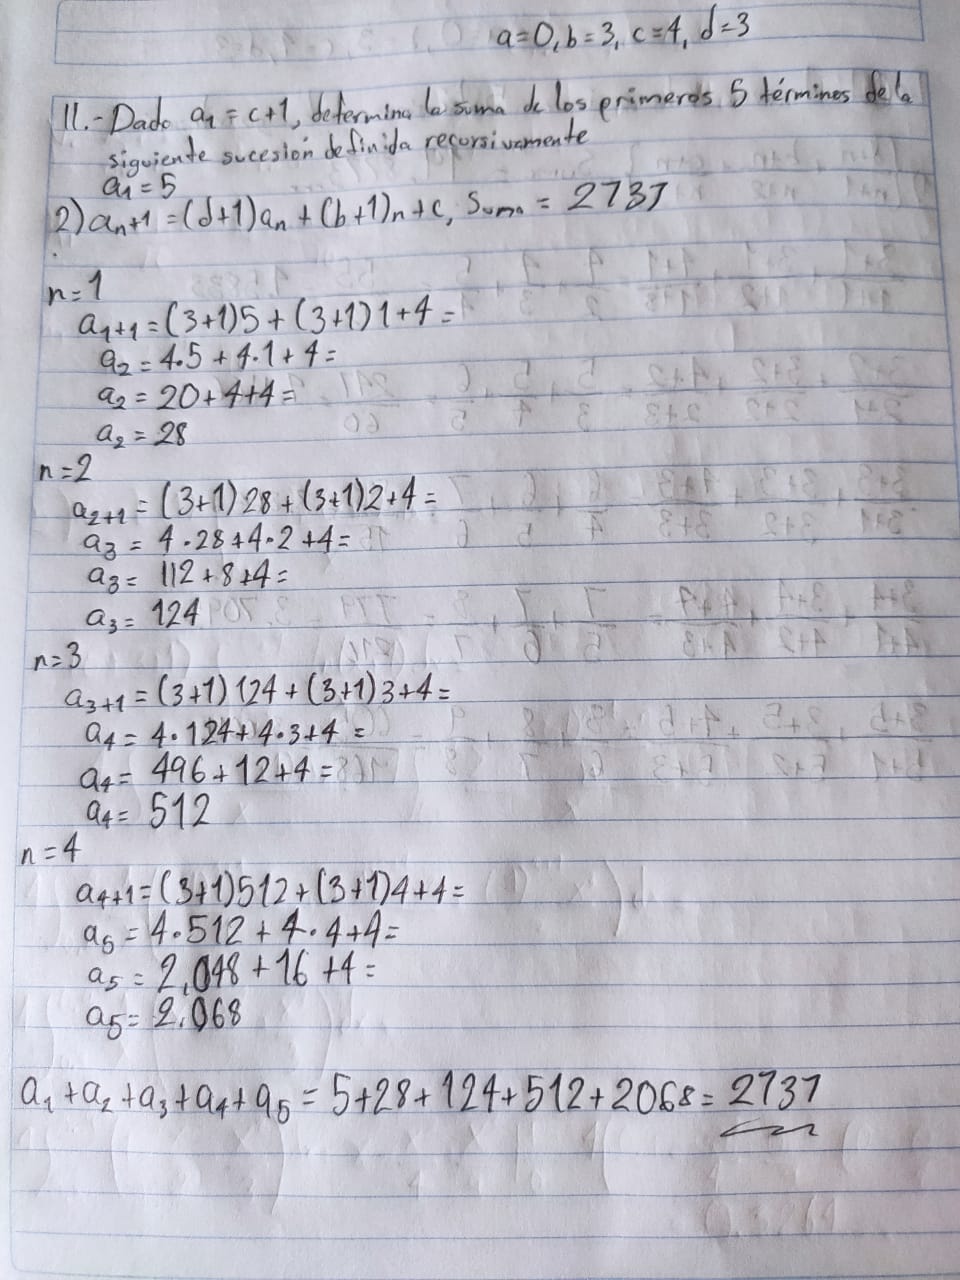 a=0, b=3, c=4, d=3
11.-Dado a₁ = c+1, determina la suma de los primeros 5 términos de la
siguiente sucesión definida recursivamente
a₁=5
2) aₙ₊₁ = (d+1)aₙ + (b+1)n + c, Suma = 2737
n=1
a₁₊₁ = (3+1)5 + (3+1)1+4 =
a₂ = 4·5 + 4·1 + 4 =
a₂ = 20+4+4=
a₂ = 28
n=2
a₂₊₁ = (3+1)28 + (3+1)2+4 =
a₃ = 4·28+4·2+4=
a₃ = 112+8+4=
a₃ = 124
n=3
a₃₊₁ = (3+1)124 + (3+1)3+4=
a₄ = 4·124+4·3+4 =
a₄ = 496+12+4=
a₄ = 512
n=4
a₄₊₁ = (3+1)512+(3+1)4+4=
a₅ = 4·512 + 4·4+4=
a₅ = 2,048 + 16 +4=
a₅ = 2,068
a₁+a₂+a₃+a₄+a₅ = 5+28+124+512+2068= 2737